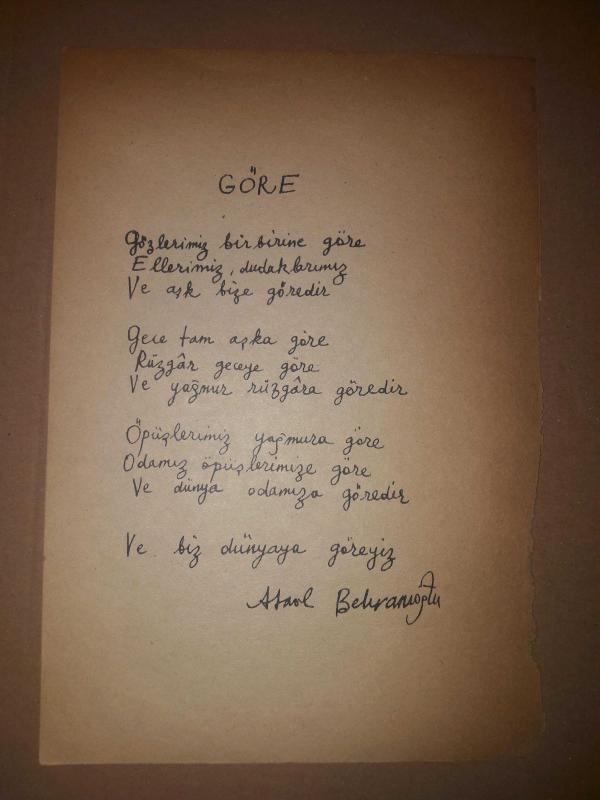 GÖRE
Gözlerimiz birbirine göre
Ellerimiz, dudaklarımız
Ve aşk bize göredir
Gece tam aşka göre
Rüzgâr geceye göre
Ve yağmur rüzgâra göredir
Öpüşlerimiz yağmura göre
Odamız öpüşlerimize göre
Ve dünya odamıza göredir
Ve biz dünyaya göreyiz
Ataol Behramoğlu